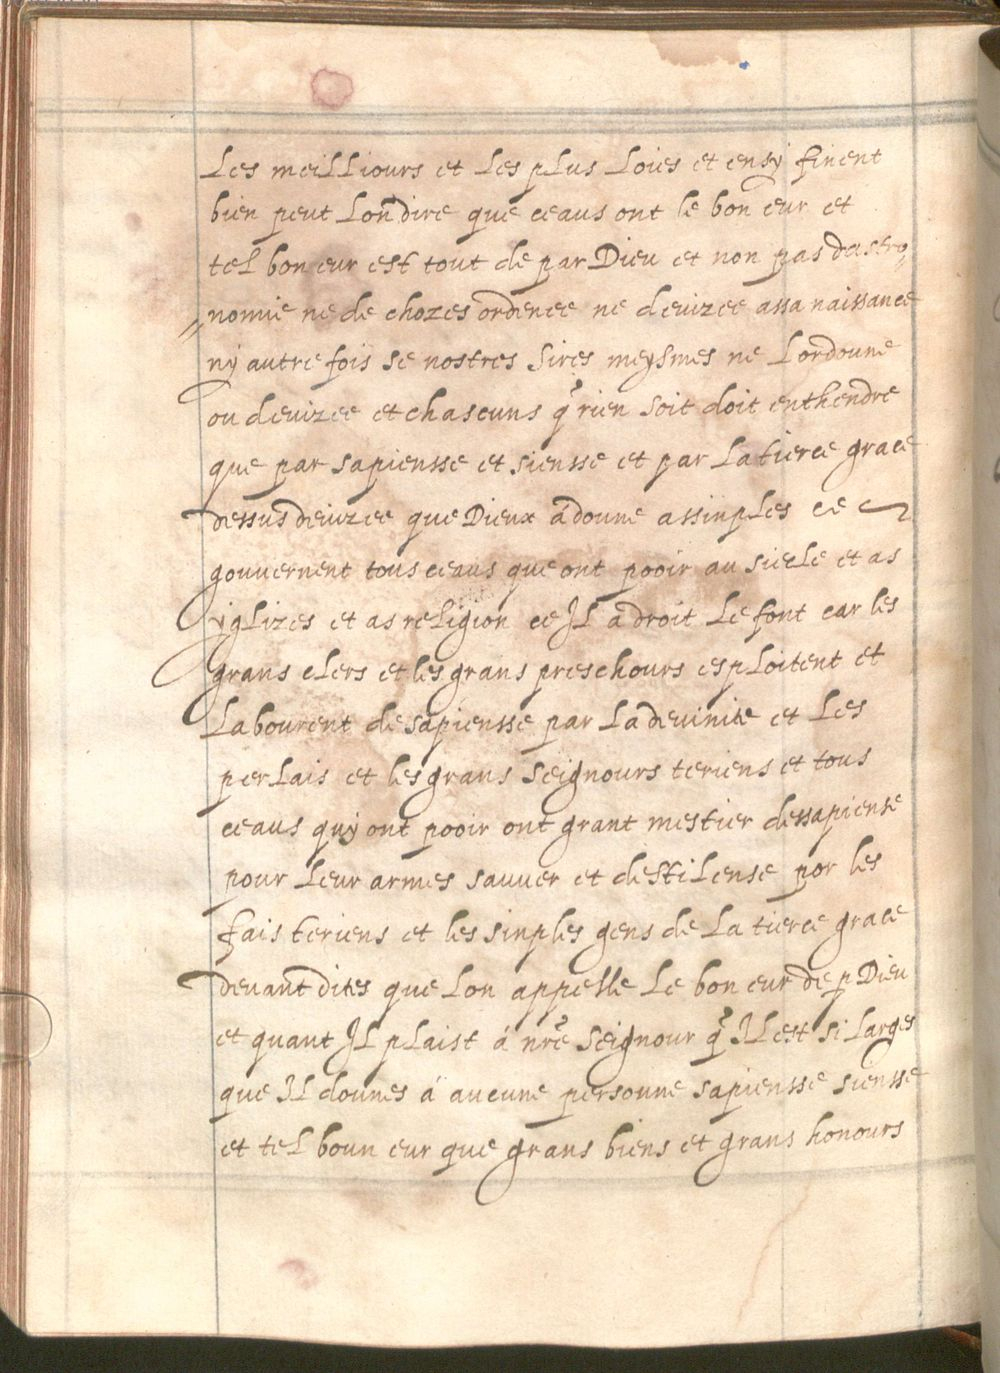 Les meilliours et Les plus Loies et ensy finent
bien peut Lon dire que ceaus ont le bon eur et
tel bon eur est tout de par Dieu et non pas dastro„
„nomie ne de chozes ordenee ne devizee assa naissance
ny autre fois se nostres Sires meysmes ne Lordoune
ou devizee et chascuns q̃ rien soit doit enthendre
que par sapiensse et siensse et par La tierce grace
dessus devizee que Dieux á doune assinples ce
gouvernent tous ceaus que ont pooir au siecle et as
yglizes et as religion ce Il a droit Le font car les
grans clers et les grans preschours esploitent et
Labourent de sapiensse par La devinite et Les
perlais et les grans Seignours teriens et tous
ceaus quy ont pooir ont grant mestier dessapiense
pour Leur armes sauver et destilense por les
fais teriens et les sinples gens de La tierce grace
devant dites que Lon appelle Le bon eur de p Dieu
et quant Il plaist á nr̃e Seignour q̃ Il est si Larges
que Il dounes á aucune persoune sapiensse siensse
et tel boun eur que grans biens et grans honours